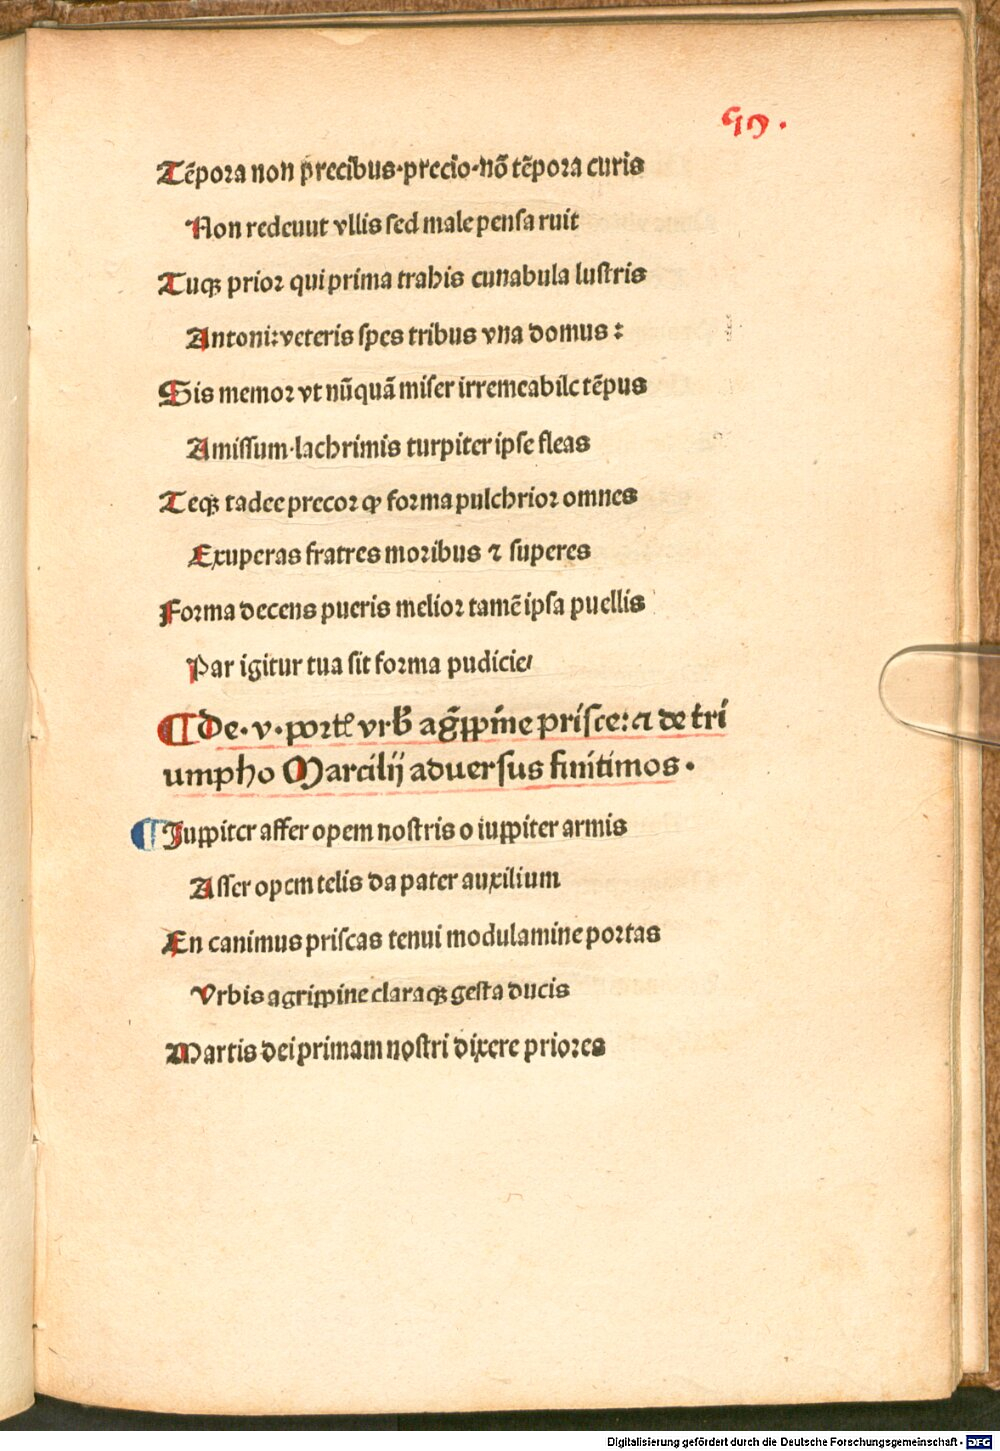 Tēpora non precibus·precio·nō tēpora curis
Non redeunt vllis sed male pensa ruit
Tuqꝫ prior qui prima trahis cunabula lustris
Antoni: veteris spes tribus vna domus:
Sis memor vt nūquā miser irremeabile tēpus
Amissum·lachrimis turpiter ipse fleas
Teqꝫ tadee precor ꝙ forma pulchrior omnes
Exuperas fratres moribus ⁊ superes
Forma decens pueris melior tamē ipsa puellis
Par igitur tua sit forma pudicie/
¶ De·v·port vrb agͬppine prisce: ⁊ de tri
umpho Marcilij aduersus finitimos·
¶ Juppiter affer opem nostris o iuppiter armis
Asser opem telis da pater auxilium
En canimus priscas tenui modulamine portas
Vrbis agrippine claraqꝫ gesta ducis
Martis dei primam nostri dixere priores
Digitalisierung gefördert durch die Deutsche Forschungsgemeinschaft - DFG